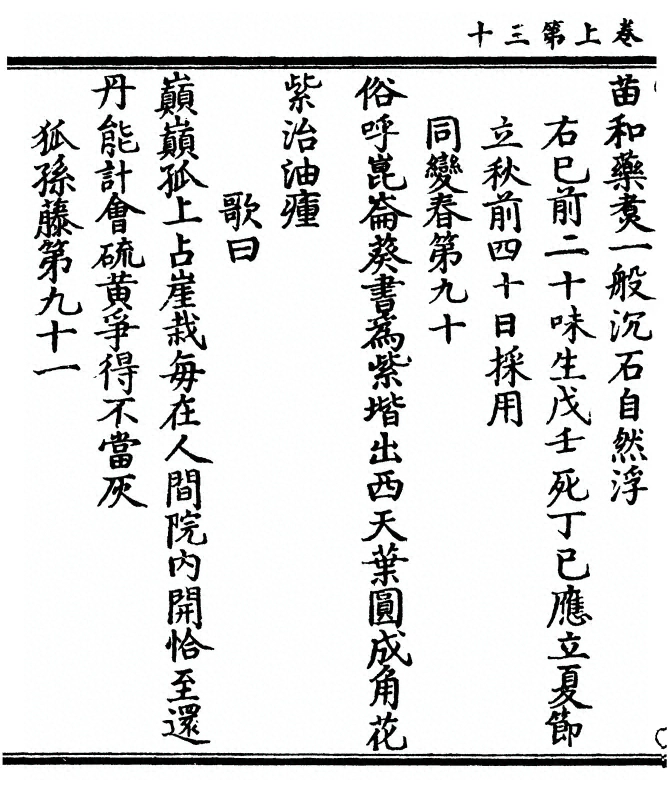 卷上第三十
苗和藥煑一般沉石自然浮
右巳前二十味生戊壬死丁巳應立夏節
立秋前四十日採用
同變春第九十
俗呼崑崙葵書為紫堦出西天葉圓成角花
紫治油瘇
歌曰
巔巔孤上占崖栽每在人間院內開恰至還
丹能計會硫黄爭得不當灰
狐孫藤第九十一